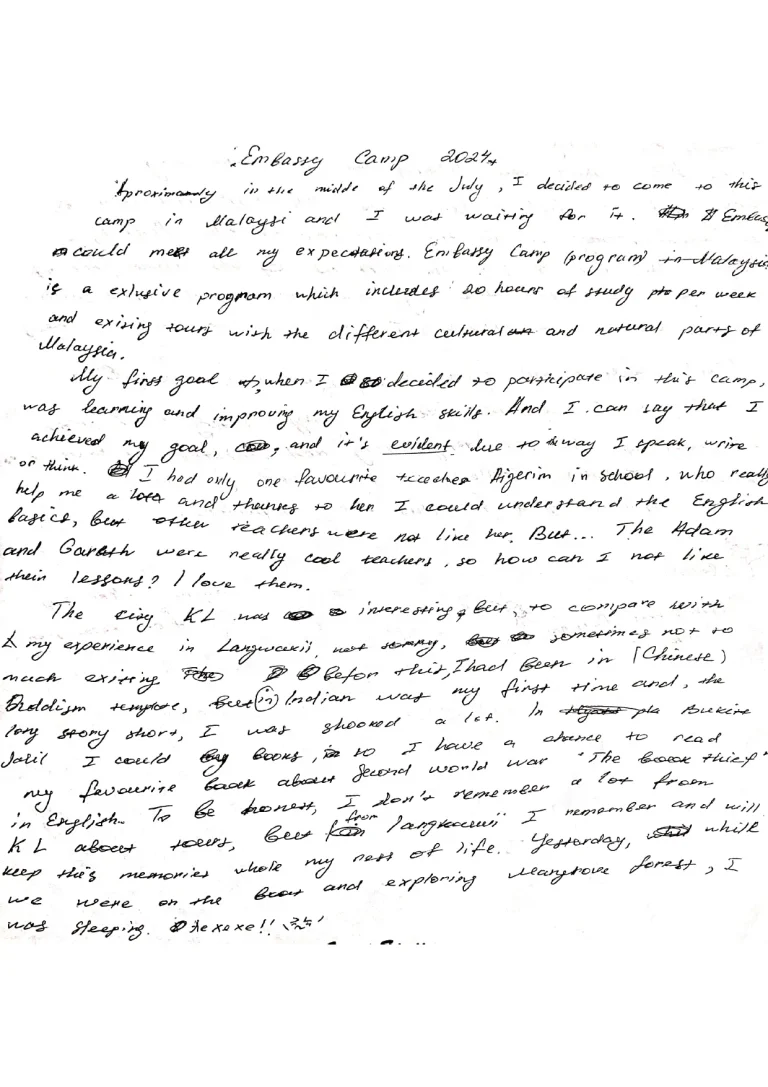 Embassy Camp 2024
Aproximandy in the middle of the July, I decided to come to this
camp in Malaysi and I was waiting for it. Embassy
could meet all my expectations. Embassy Camp (program) in Malaysia
is a exlusive program which includes 20 hours of study per week
and exising tours with the different cultural and natural parts of
Malaysia.
My first goal, when I decided to participate in this camp,
was learning and improving my English skills. And I can say that I
achieved my goal, and it's evident due to way I speak, write
or think. I had only one favourite teacher Aigerim in school, who really
help me a lot and thanks to her I could understand the English
basics, but other teachers were not like her. But... The Adam
and Gareth were really cool teachers, so how can I not like
their lessons? I love them.
The city KL was interesting, but, to compare with
my experience in Langwakii, not sometimes not to
much exiting Befor this, I had been in (Chinese)
Buddism temple, but (in) Indian was my first time and, the
long story short, I was shooked a lot. In Bukit
Jalil I could books, so I have a chance to read
my favourite book about Second world war "The book thief"
in English. To be honest, I don't remember a lot from
KL about tours, but from langkawii I remember and will
keep this memories whole my rest of life. Yesterday, while
we were on the boat and exploring Mangrove forest, I
was sleeping. Hexexe!!